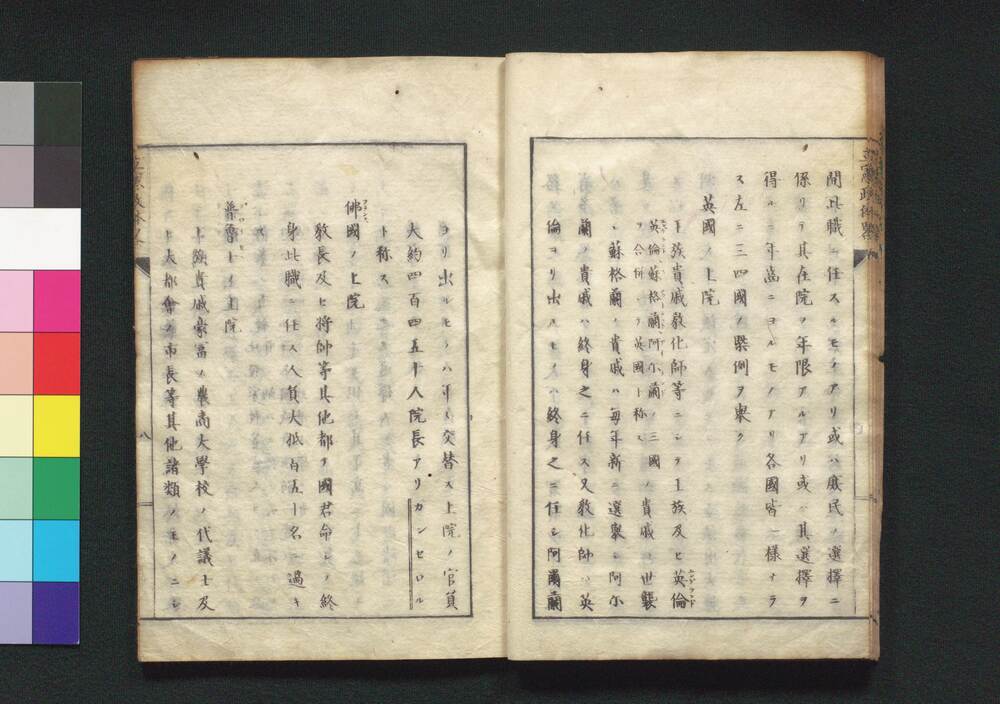 間此職ニ任スルモノアリ或ハ庶民ノ選擇ニ
係リテ其在院ヲ年限アルアリ或ハ其選擇ヲ
得ル二年齒ニヨルモノアリ各國皆一樣ナラ
ス左ニ三四國ノ槩例ヲ擧ク
英國ノ上院
王族貴戚敎化師等ニシテ王族及ヒ英倫
英倫蘇格蘭阿尓蘭ノ三國
ヲ合併シテ英國ト称ス
ノ貴戚ハ世襲
蘇格蘭ノ貴戚ハ毎年新ニ選擧シ阿尓
蘭ノ貴戚ハ終身之ニ任ス又敎化師ハ英
倫ヨリ出ルモノハ終身之ニ任シ阿爾蘭
ヨリ出ルモノハ年々交替ス上院ノ官員
大約四百四五十人院長アリカンセロル
ト称ス
佛國ノ上院
敎長及ヒ將帥等其他都テ國君命シテ終
身此職ニ任ス人員大抵百五十名ニ過キ
ス
普魯士ノ上院
貴戚豪富ノ農商大學校ノ代議士及
ヒ大都會ノ市長等其他諸類ノモノニシ
立憲政体畧
八